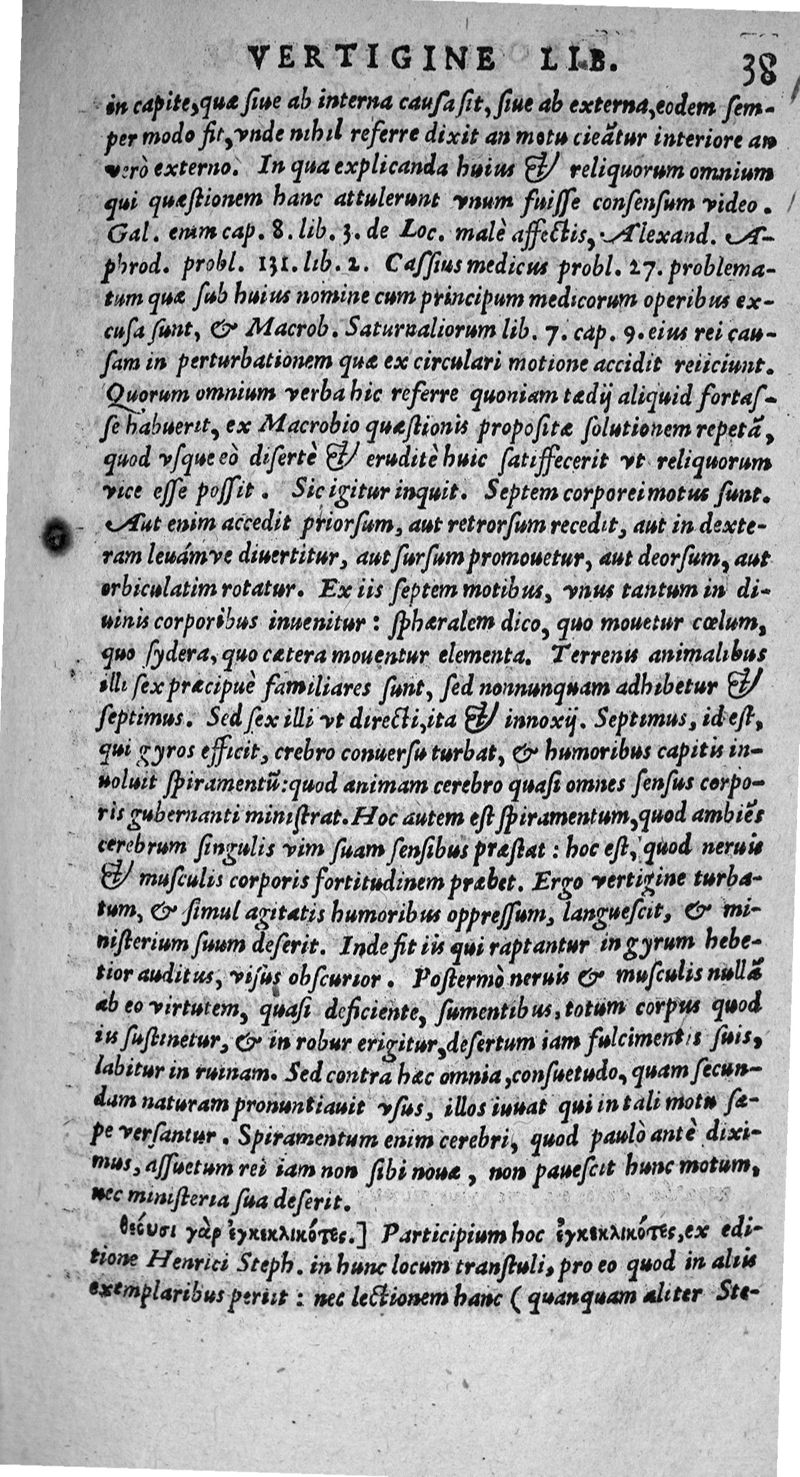 VERTIGINE LIB. 38
in capite, quæ ſiue ab interna cauſa ſit, ſiue ab externa, eodem ſem-
per modo fit, vnde nihil referre dixit an motu cieãtur interiore an
verò externo. In qua explicanda huius & reliquorum omnium
qui quæſtionem hanc attulerunt vnum fuiſſe conſenſum video.
Gal. enim cap. 8. lib. 3. de Loc. malè affectis, Alexand. A-
phrod. probl. 131. lib. 2. Caſſius medicus probl. 27. problema-
tum quæ ſub huius nomine cum principum medicorum operibus ex-
cuſa ſunt, & Macrob. Saturnaliorum lib. 7. cap. 9. eius rei cau-
ſam in perturbationem quæ ex circulari motione accidit reiiciunt.
Quorum omnium verba hic referre quoniam tædij aliquid fortaſ-
ſe habuerit, ex Macrobio quæſtionis propoſitæ ſolutionem repetã,
quod vſque eò diſertè & eruditè huic ſatiſfecerit vt reliquorum
vice eſſe poſſit. Sic igitur inquit. Septem corporei motus ſunt.
Aut enim accedit priorſum, aut retrorſum recedit, aut in dexte-
ram leuámve diuertitur, aut ſurſum promouetur, aut deorſum, aut
orbiculatim rotatur. Ex iis ſeptem motibus, vnus tantum in di-
uinis corporibus inuenitur: ſphæralem dico, quo mouetur cœlum,
quo ſydera, quo cætera mouentur elementa. Terrenis animalibus
illi ſex præcipuè familiares ſunt, ſed nonnunquam adhibetur &
ſeptimus. Sed ſex illi vt directi, ita & innoxij. Septimus, id eſt,
qui gyros efficit, crebro conuerſu turbat, & humoribus capitis in-
uoluit ſpiramentũ: quod animam cerebro quaſi omnes ſenſus corpo-
ris gubernanti miniſtrat. Hoc autem eſt ſpiramentum, quod ambiẽs
cerebrum ſingulis vim ſuam ſenſibus præſtat: hoc eſt, quod neruis
& muſculis corporis fortitudinem præbet. Ergo vertigine turba-
tum, & ſimul agitatis humoribus oppreſſum, langueſcit, & mi-
niſterium ſuum deſerit. Inde fit iis qui raptantur in gyrum hebe-
tior auditus, viſus obſcurior. Poſtermò neruis & muſculis nullã
ab eo virtutem, quaſi deficiente, ſumentibus, totum corpus quod
iis ſuſtinetur, & in robur erigitur, deſertum iam fulcimentis ſuis,
labitur in ruinam. Sed contra hæc omnia, conſuetudo, quam ſecun-
dam naturam pronuntiauit vſus, illos iuuat qui in tali motu ſæ-
pe verſantur. Spiramentum enim cerebri, quod paulò antè dixi-
mus, aſſuetum rei iam non ſibi nouæ, non paueſcit hunc motum,
nec miniſteria ſua deſerit.
θέουσι γὰρ ἐγκεκλικότες.] Participium hoc ἐγκεκλικότες, ex edi-
tione Henrici Steph. in hunc locum tranſtuli, pro eo quod in aliis
exemplaribus periit: nec lectionem hanc (quanquam aliter Ste-